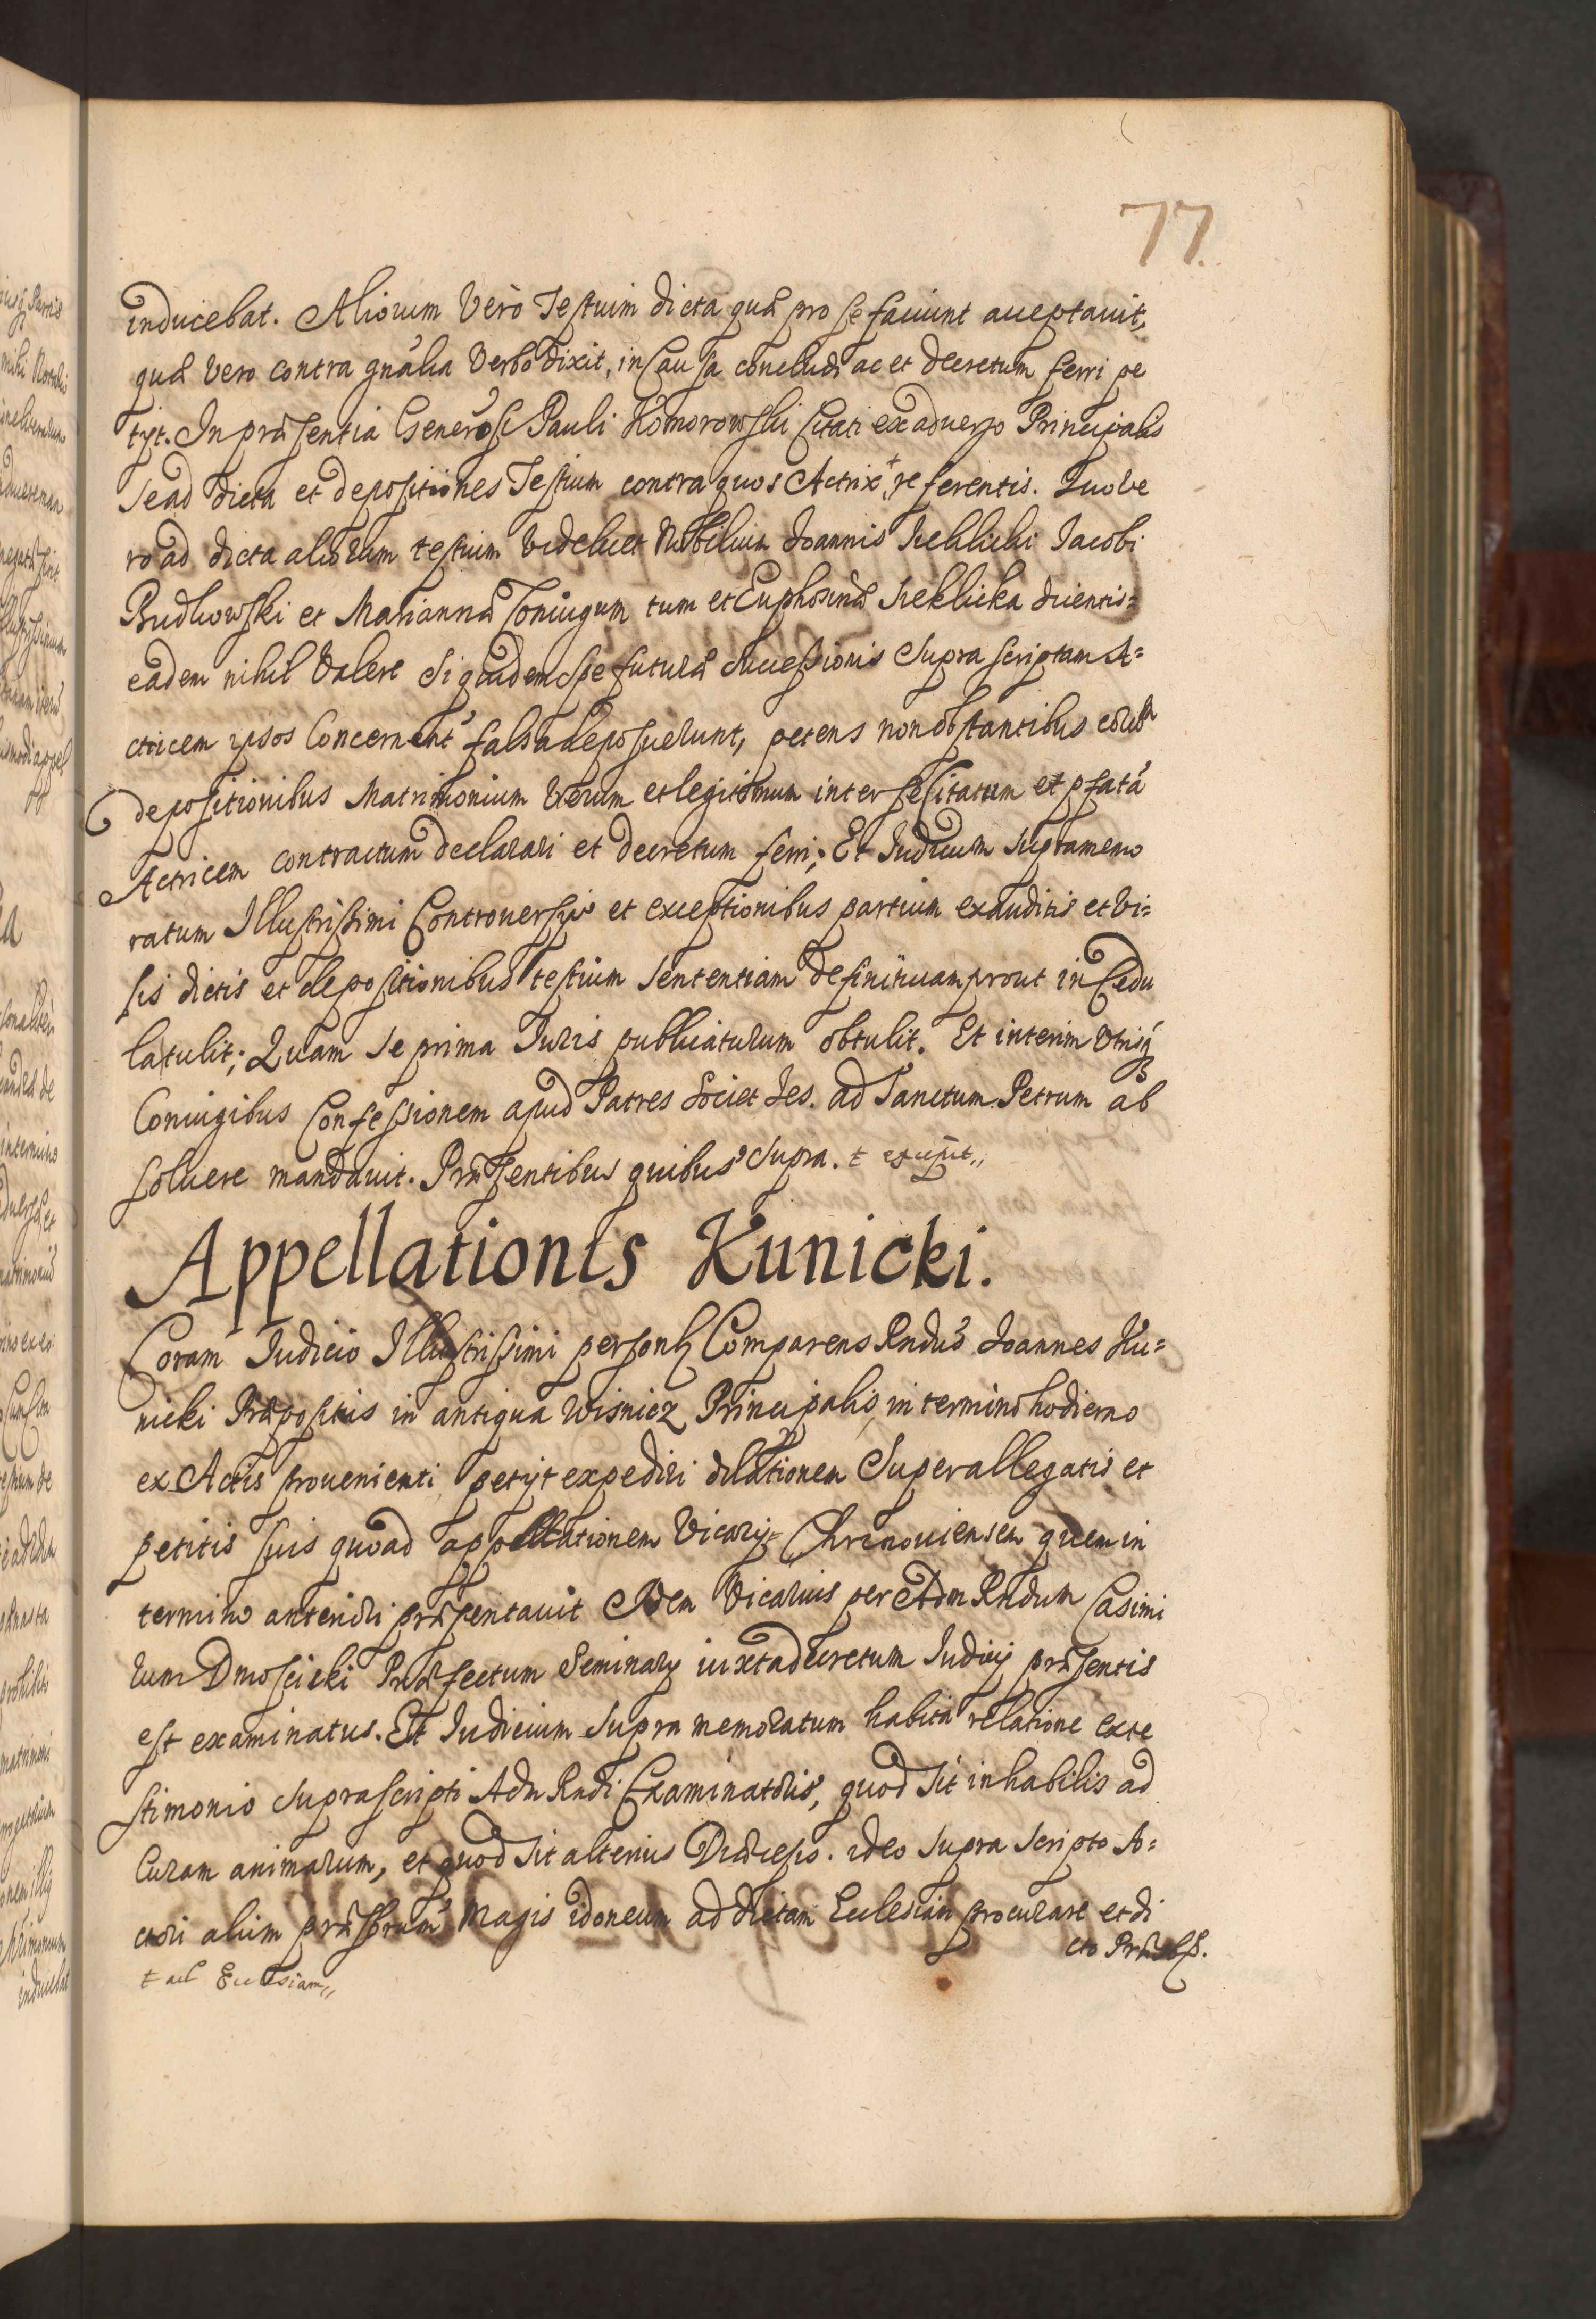 77.
inducebat. Aliorum Vero Testium dicta quæ pro se faciunt acceptavit,
quæ vero contra gnalia Verbo dixit, in Causa concludi ac et decretum ferri pe
tyt. In præsentia Generosi Pauli Komorowski Citati ex adverso Principalis
se ad dicta et depositiones Testium contra quos Actrix + referentis. Quo ve
ro ad dicta aliorum testium Videlicet Nobilium Joannis Jacobi
Budkowski et Mariannæ Coniugum tum et Euphosinæ dicentis=
eadem nihil Valere Siquidem Spe futuræ Successionis Suprascriptam A=
ctricem ipsos Concernent falsa deposuerunt, petens non obstantibus eorum
depositionibus Matrimonium Verum et legitimum inter se Citatum et pfata
Actricem contractum declarari et decretum ferri; Et Judicium Supramemo
ratum Illustrissimi Controversijs et exceptionibus partium exauditis et Vi=
sis dictis et depositionibus testium Sententiam definitivam prout in Cedu
la tulit; Quam se prima Juris publicaturum obtulit. Et interim Utrisq
Coniugibus Confessionem apud Patres Societ Jes. ad Sanctum Petrum ab
solvere mandavit. Præsentibus quibus Supra. ŧ excipit,,
Appellationis Kunicki.
Coram Judicio Illustrissimi personlr Comparens Rndus Joannes Ku=
nicki Præpositus in antiqua Wisnicz Principalis, in termino hodierno
ex Actis provenienti petijt expediri dilationem Super allegatis et
petitis suis quoad appellationem Vicarij= Chronoviensem quem in
termino anteriori præsentavit Idem Vicarius per Adm Rndum Casimi
rum Dmosicki Præfectum Seminarij iuxta decretum Judicij præsentis
est examinatus. Et Judicium Supra memoratum habita relatione ex te
stimonio Suprascripti Adm Rndi Examinatoris, quod Sit inhabilis ad
Curam animarum, et quod Sit alterius Diæcesis. ideo Supra Scripto A=
ctori alium præsbrum Magis idoneum ad dictam Ecclesiam procurare et di
cto
ŧ ad Ecclesiam,,